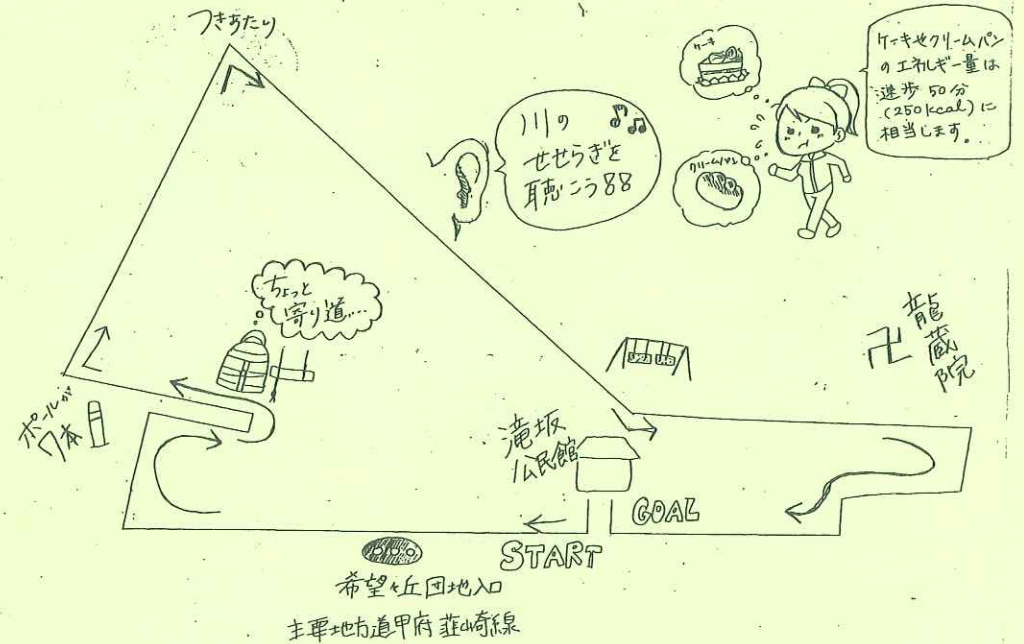 つきあたり
ケーキ
ケーキやクリームパン
のエネルギー量は
速歩50分
(250kcal)に
相当します。
川の
せせらぎを
聴こう88
クリームパン
ちょっと
寄り道…
卍龍蔵院
ポールが
7本
滝坂
公民館
GOAL
START
希望ヶ丘団地入口
主要地方道甲府韮崎線